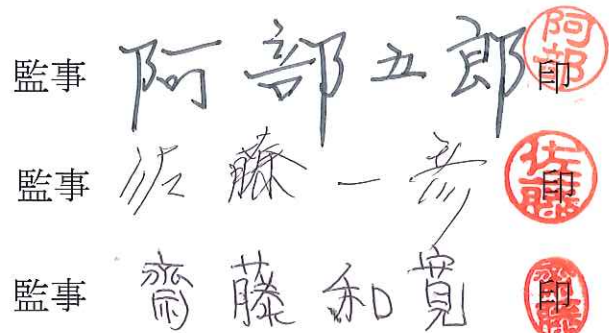 監事 阿部五郎 印 阿部
監事 佐藤一彦 印 佐藤
監事 齋藤和寛 印 齋藤